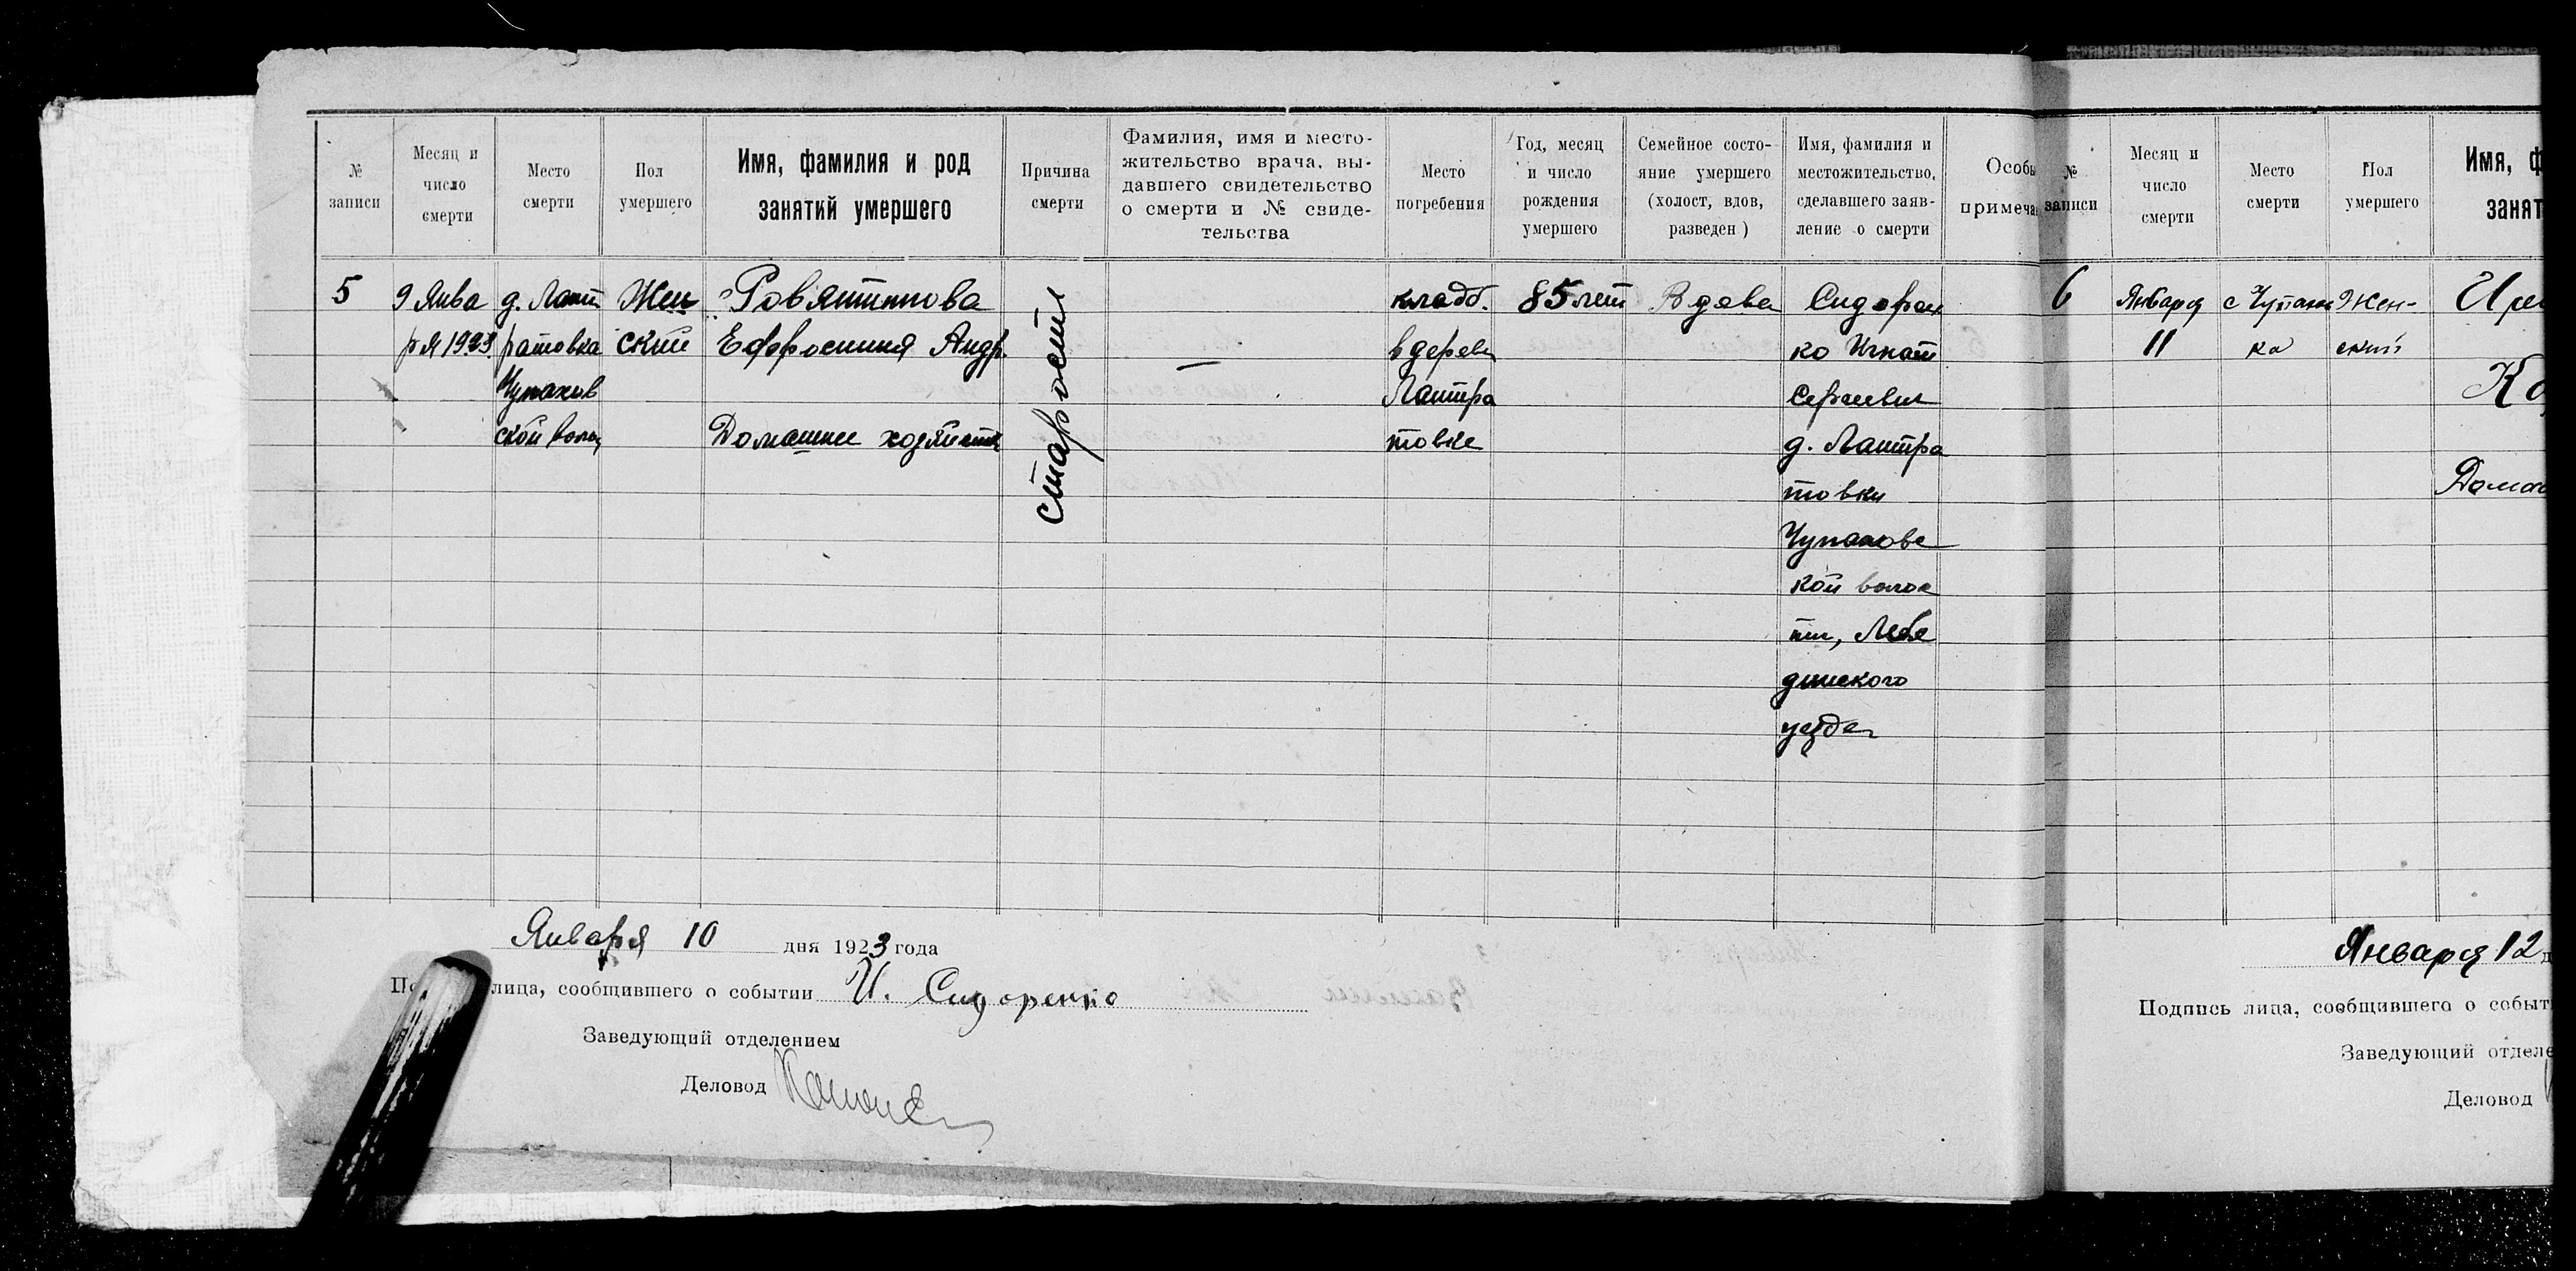 № записи
Месяц и число смерти
Место смерти
Пол умершего
Имя, фамилия и род занятий умершего
Причина смерти
Фамилия, имя и место-
жительство врача, вы-
давшего свидетельство
о смерти и № свиде-
тельства
Место погребения
Год, месяц и число рождения умершего
Семейное состо-
яние умершего
(холост, вдов,
разведен)
Имя, фамилия и
местожительство,
сделавшего заяв-
ление о смерти
Особы
примеча
5
9 Янва
ря 1923
д. Лашт
ратовка
Чупахов
ской волос
Жен
ский
Ефросиния Андр.
Домашнее хозяйств
старости
—
кладб.
в дерев
Лаштра
товке
85 лет
Вдова
Сидорен
ко Игнат
Сергеевич
д. Лаштра
товки
Чупаховс
кой волос
ти, Лебе
динского
уезда
Января 10 дня 1923 года
По лица, сообщившего о событии И. Сидоренко
Заведующий отделением
Деловод
№ записи
Месяц и число смерти
Место смерти
Пол умершего
Имя, ф
занят
6
Января
11
с Чупахов
ка
Жен-
ский
Ири
Ко
Дома
Января 12 д
Подпись лица, сообщившего о событ
Заведующий отделе
Деловод